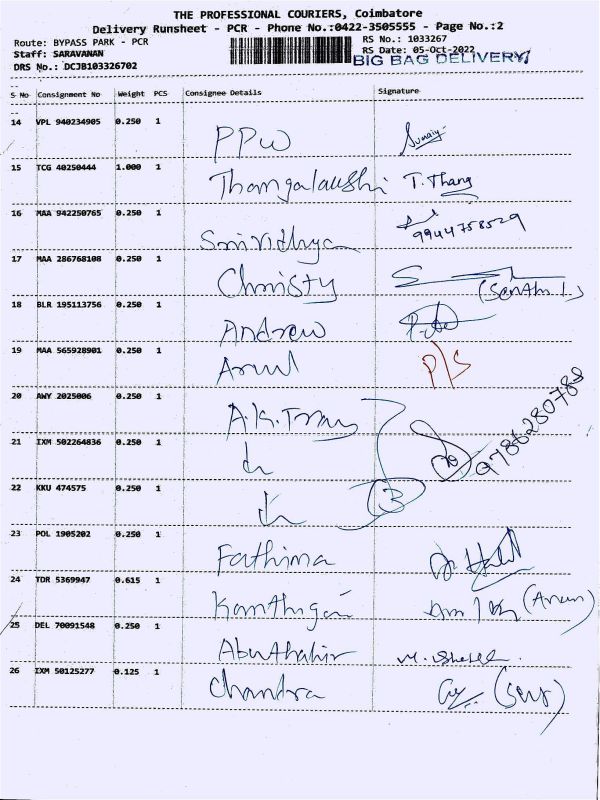 THE PROFESSIONAL COURIERS, Coimbatore
Delivery Runsheet - PCR - Phone No.:0422-3505555 - Page No.:2
Route: BYPASS PARK - PCR
RS No.: 1033267
Staff: SARAVANAN
RS Date: 05-Oct-2022
DRS No.: DCJB103326702
BIG BAG DELIVERY
S No Consignment No Weight PCS Consignee Details Signature
14 VPL 940234905 0.250 1 PPW
15 TCG 40250444 1.000 1 T. Thang
16 MAA 942250765 0.250 1 Srividhya 9944758529
17 MAA 286768108 0.250 1 Christy
18 BLR 195113756 0.250 1 Andrew
19 MAA 565928901 0.250 1 Arul P/S
20 AWY 2025006 0.250 1 A.K. 9786280788
21 IXM 502264836 0.250 1
22 KKU 474575 0.250 1 3
23 POL 1905202 0.250 1 Fathima
24 TDR 5369947 0.615 1 (Arun)
25 DEL 70091548 0.250 1 Abuthahir
26 IXM 50125277 0.125 1 Chandra